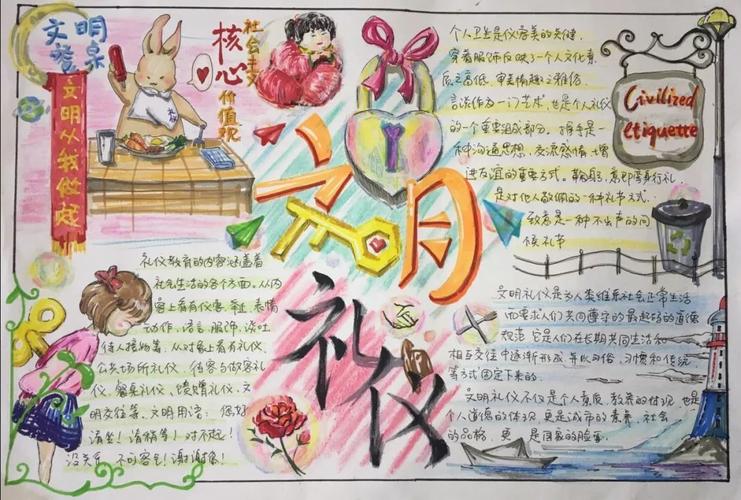 文明
餐桌
文明从我做起
社会主义
核心
价值观
个人卫生是仪容美的关键,
穿着服饰反映了一个人文化素
质之高低,审美情趣之雅俗.
言谈作为一门艺术,也是个人礼仪
的一个重要组成部分.握手是一
种沟通思想、交流感情、增
进友谊的重要方式.鞠躬,意即弯身行礼,
是对他人敬佩的一种礼节方式.
致意是一种不出声的问
候礼节
Civilized
etiquette
文明
礼仪
礼仪教育的内容涵盖着
社会生活的各个方面.从内
容上看有仪容、举止、表情
动作、语言、服饰、谈吐
待人接物等,从对象上看有礼仪、
公共场所礼仪、待客与做客礼
仪、餐桌礼仪、馈赠礼仪、文
明交往等.文明用语:您好
请坐!请稍等!对不起!
没关系 不可客气!谢谢您!
文明礼仪是为人类维系社会正常生活
而要求人们共同遵守的最起码的道德
规范 它是人们在长期共同生活和
相互交往中逐渐形成 并以风俗、习惯和传统
等方式固定下来的.
文明礼仪不仅是个人素质、教养的体现,也是
个人道德的体现,更是城市的素养、社会
的品格,更 是国家的脸害.